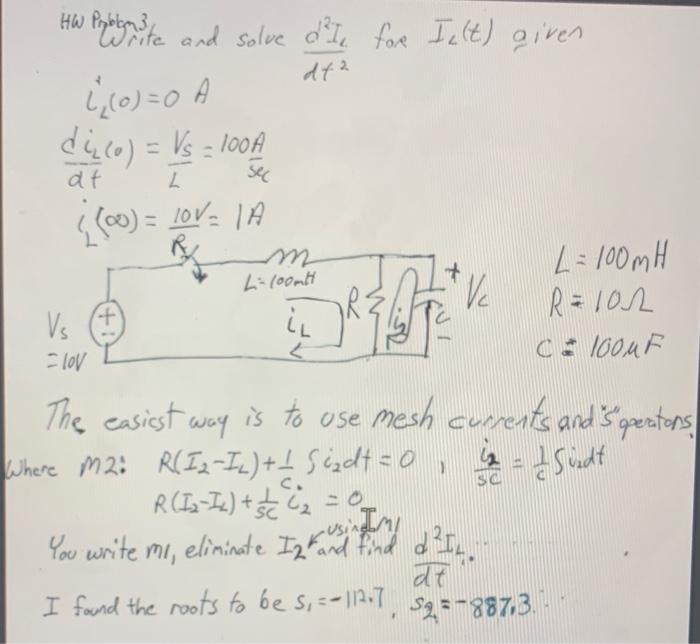 HW Problem 3
Write and solve d²I_L/dt² for I_L(t) given
i_L(0) = 0 A
di_L(0)/dt = Vs/L = 100 A/sec
i_L(∞) = 10V/R = 1A
L = 100mH
L = 100mH
R = 10Ω
C = 100μF
R
i_L
i_2
C
+
Vc
-
Vs
+
-
= 10V
The easiest way is to use mesh currents and "s" operators,
Where M2: R(I_2 - I_L) + 1/C ∫ i_2 dt = 0 , i_2/SC = 1/C ∫ i_2 dt
R(I_2 - I_L) + 1/SC i_2 = 0
You write M1, eliminate I_2 using M1 and find d²I_L/dt.
I found the roots to be s_1 = -112.7, s_2 = -887.3.